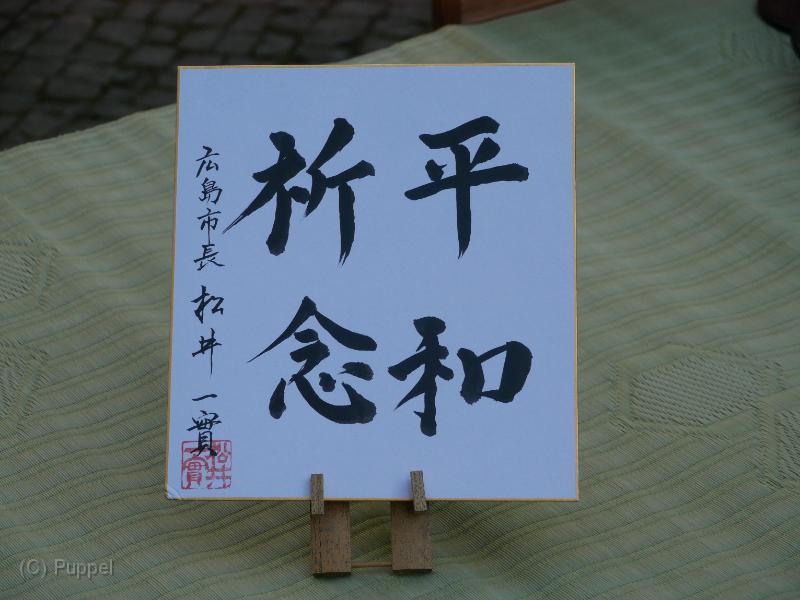 平和
祈念
広島市長 松井一實
松井一實
(C) Puppel